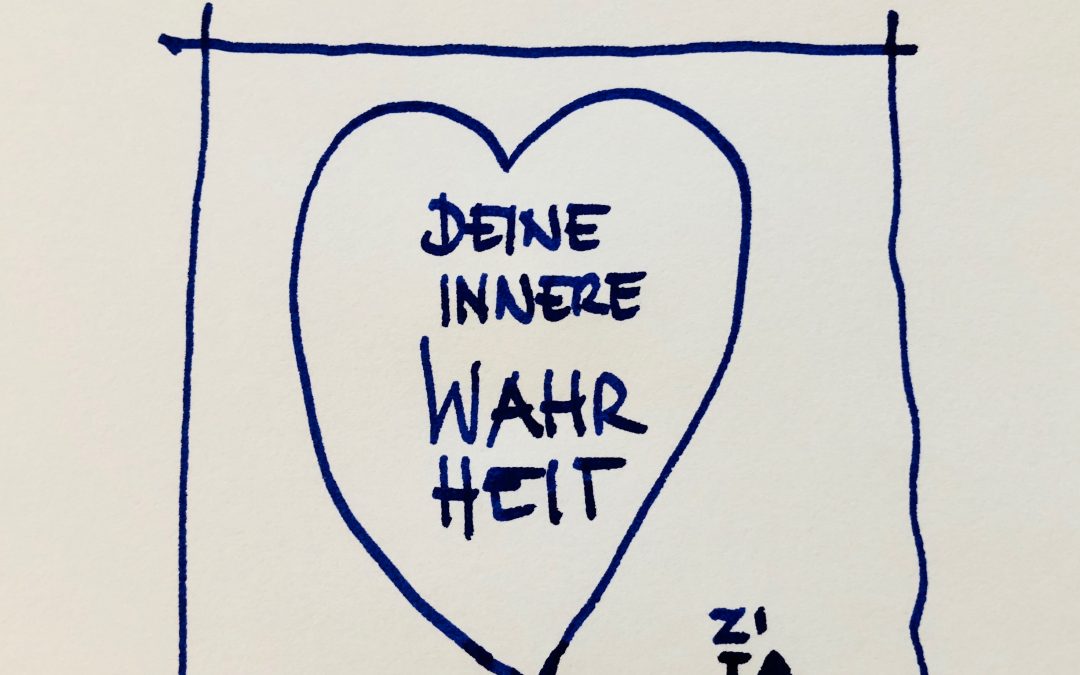 DEINE
INNERE
WAHR
HEIT
ZI
TA